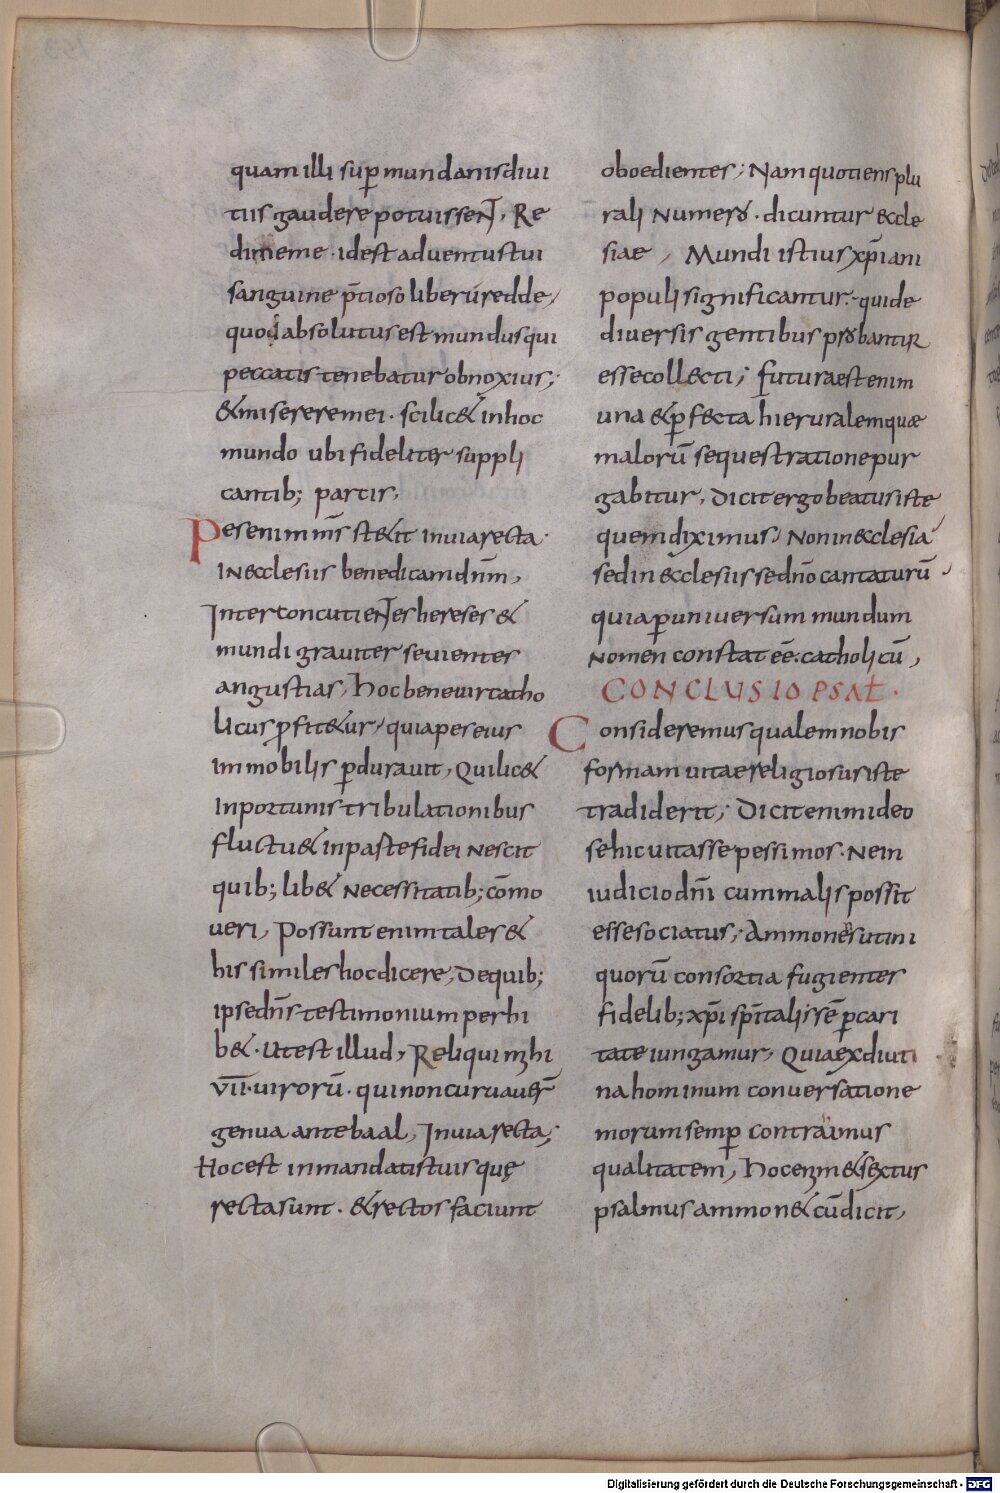 quam illi sup̱ mundanis divi
tiis gaudere potuissent, Re
dime me · id est adventus tui
sanguine p̄tioso liberū redde,
quod absolutus est mundus qui
peccatis tenebatur obnoxius;
& miserere mei · scilic& in hoc
mundo ubi fideliter suppli
cantib; parcis,
Pes enim m̄s st&it in via recta ·
IN ecclesiis benedicam dn̄m,
Inter concutientes hereses &
mundi graviter sevientes
angustias, Hoc bene vir catho
licus ꝓfit&ur, quia pes eius
immobilis p̱duravit, Qui lic&
Inportunis tribulationibus
fluctu& in p̱aste fidei Nescit
quib; lib& Necessitatib; cōmo
veri, Possunt enim tales &
his similes hoc dicere, De quib;
ipse dn̄s testimonium perhi
b& · Ut est illud, Reliqui mihi
VII · virorū · qui non curvaver̄
genua ante baal, In via recta;
Hoc est in mandatis tuis quę
recta sunt · & rectos faciunt
oboedientes; Nam quotiens plu
rali Numero · dicuntur eccle
siae, Mundi istius xp̄iani
populi significantur · qui de
diversis gentibus probantur
esse coll&cti; futura est enim
una & p̱fecta hierusalem quae
malorū sequestratione pur
gabitur, Dicit ergo beatus iste
quem diximus, Non in ecclesia
sed in ecclesiis se dn̄o cantaturū,
quia p̱ universum mundum
Nomen constat eē · catholicū,
CONCLUSIO PSAŁ ·
Consideremus qualem nobis
formam vitae religiosus iste
tradiderit; Dicit enim ideo
se hic vitasse pessimos · Ne in
iudicio dn̄i cum malis possit
esse sociatus; Ammonens ut ini
quorū consortia fugientes
fidelib; xp̄i sp̄italissē p̱ cari
tate iungamur, Quia ex diuti
na hominum conversatione
morum semp̱ contraimus
qualitatem, Hoc enim & sextus
psalmus ammon& cū dicit,
Digitalisierung gefördert durch die Deutsche Forschungsgemeinschaft - DFG